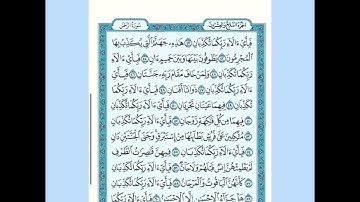 الجزء السابع والعشرون سورة الرحمن
فَبِأَيِّ ءَالَآءِ رَبِّكُمَا تُكَذِّبَانِ ٤٢ هَٰذِهِۦ جَهَنَّمُ ٱلَّتِي يُكَذِّبُ بِهَا
ٱلْمُجْرِمُونَ ٤٣ يَطُوفُونَ بَيْنَهَا وَبَيْنَ حَمِيمٍ ءَانٍ ٤٤ فَبِأَيِّ
ءَالَآءِ رَبِّكُمَا تُكَذِّبَانِ ٤٥ وَلِمَنْ خَافَ مَقَامَ رَبِّهِۦ جَنَّتَانِ ٤٦ فَبِأَيِّ
ءَالَآءِ رَبِّكُمَا تُكَذِّبَانِ ٤٧ ذَوَاتَآ أَفْنَانٍ ٤٨ فَبِأَيِّ ءَالَآءِ رَبِّكُمَا
تُكَذِّبَانِ ٤٩ فِيهِمَا عَيْنَانِ تَجْرِيَانِ ٥٠ فَبِأَيِّ ءَالَآءِ رَبِّكُمَا تُكَذِّبَانِ
٥١ فِيهِمَا مِن كُلِّ فَٰكِهَةٍ زَوْجَانِ ٥٢ فَبِأَيِّ ءَالَآءِ رَبِّكُمَا تُكَذِّبَانِ
٥٣ مُتَّكِـِٔينَ عَلَىٰ فُرُشٍۭ بَطَآئِنُهَا مِنْ إِسْتَبْرَقٍ وَجَنَى ٱلْجَنَّتَيْنِ دَانٍ
٥٤ فَبِأَيِّ ءَالَآءِ رَبِّكُمَا تُكَذِّبَانِ ٥٥ فِيهِنَّ قَٰصِرَٰتُ ٱلطَّرْفِ
لَمْ يَطْمِثْهُنَّ إِنسٌ قَبْلَهُمْ وَلَا جَآنٌّ ٥٦ فَبِأَيِّ ءَالَآءِ رَبِّكُمَا تُكَذِّبَانِ
٥٧ كَأَنَّهُنَّ ٱلْيَاقُوتُ وَٱلْمَرْجَانُ ٥٨ فَبِأَيِّ ءَالَآءِ رَبِّكُمَا تُكَذِّبَانِ
٥٩ هَلْ جَزَآءُ ٱلْإِحْسَٰنِ إِلَّا ٱلْإِحْسَٰنُ ٦٠ فَبِأَيِّ ءَالَآءِ رَبِّكُمَا